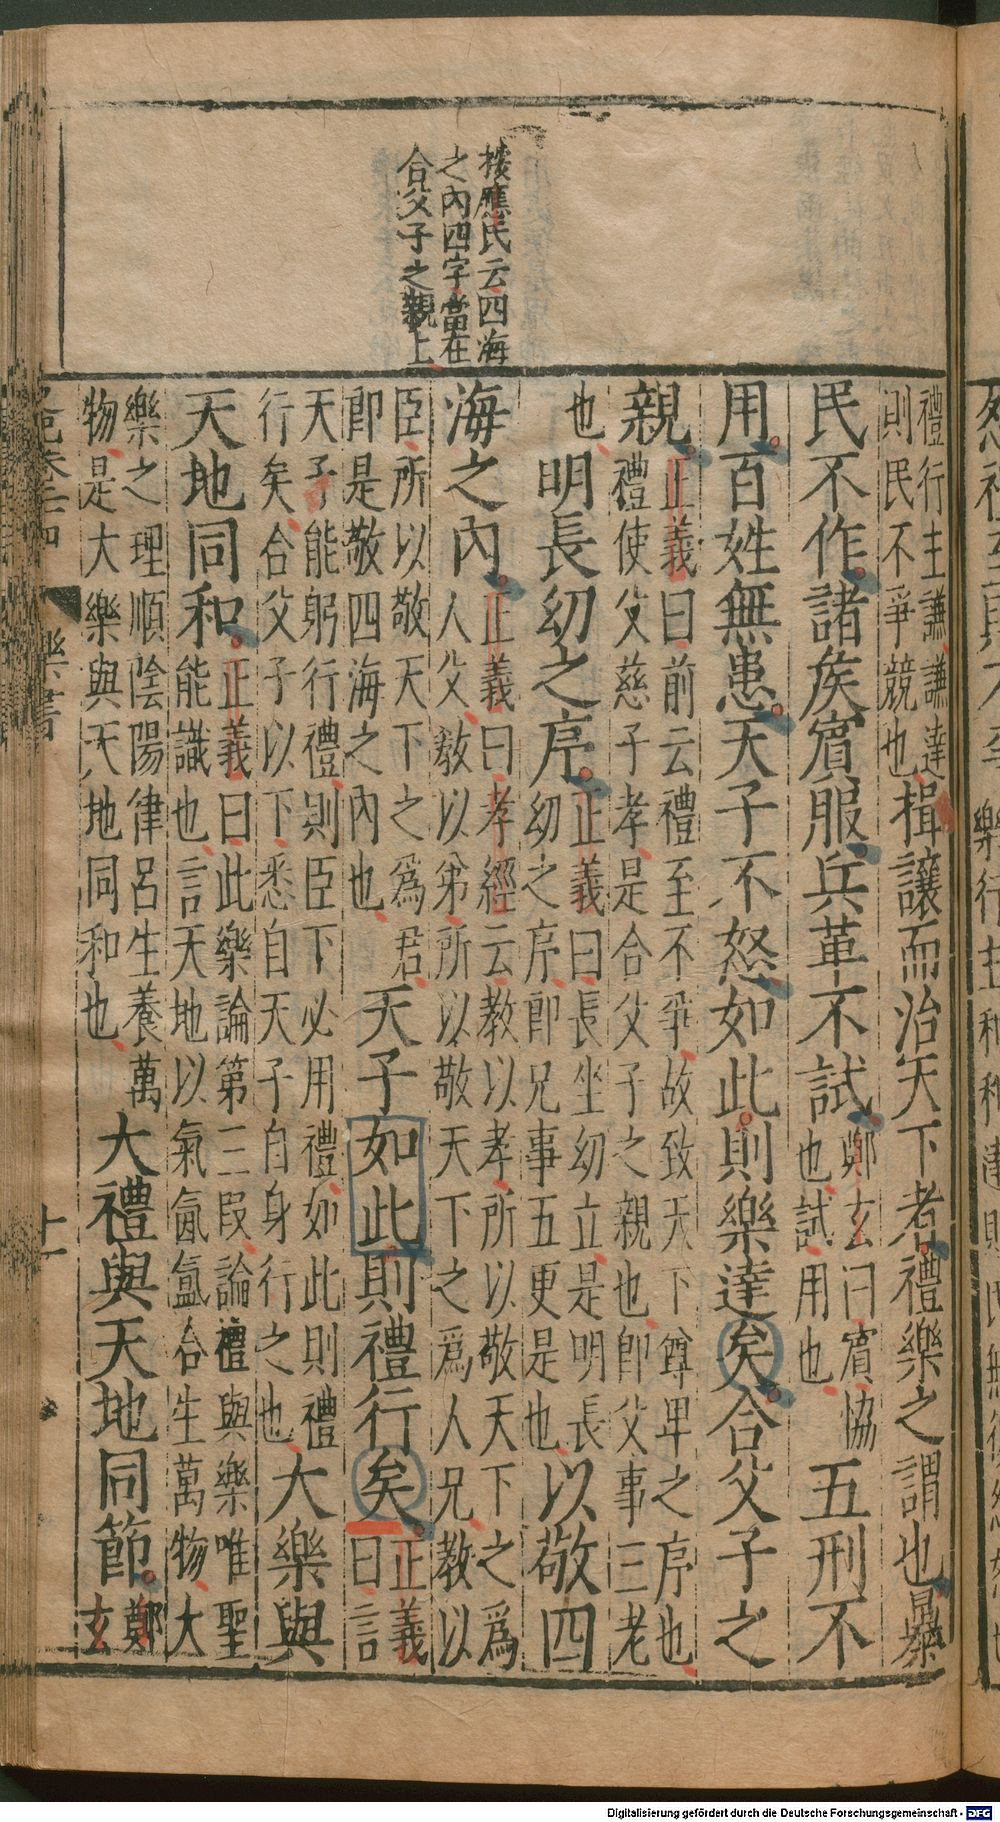 按應氏云四海
之內四字當在
合父子之親上
禮行主謙謙達
則民不爭競也
揖讓而治天下者禮樂之謂也暴
民不作諸矦賓服兵革不試
鄭玄曰賓協
也試用也
五刑不
用百姓無患天子不怒如此則樂達矣合父子之
親
正義曰前云禮至不爭故致天下尊卑之序也
禮使父慈子孝是合父子之親也卽父事三老
也
明長幼之序
正義曰長坐幼立是明長
幼之序卽兄事五更是也
以敬四
海之內
正義曰孝經云教以孝所以敬天下之爲
人父教以弟所以敬天下之爲人兄教以
臣所以敬天下之爲君
卽是敬四海之內也
天子如此則禮行矣
正義
曰言
天子能躬行禮則臣下必用禮如此則禮
行矣合父子以下悉自天子自身行之也
大樂與
天地同和
正義曰此樂論第二叚論禮與樂唯聖
能識也言天地以氣氤氳合生萬物大
樂之理順陰陽律呂生養萬
物是大樂與天地同和也
大禮與天地同節
鄭
玄
樂書
十一
Digitalisierung gefördert durch die Deutsche Forschungsgemeinschaft - DFG